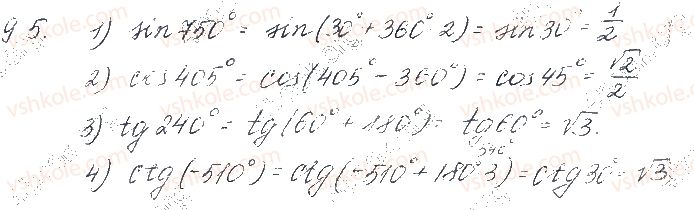 9 5. 1) sin 750° = sin(30° + 360° 2) = sin 30 = 1/2
2) cos 405° = cos(405° − 360°) = cos 45° = √2/2
3) tg 240° = tg(60° + 180°) = tg 60° = √3.
540°
4) ctg(−510°) = ctg(−510° + 180° 3) = ctg 30° = √3